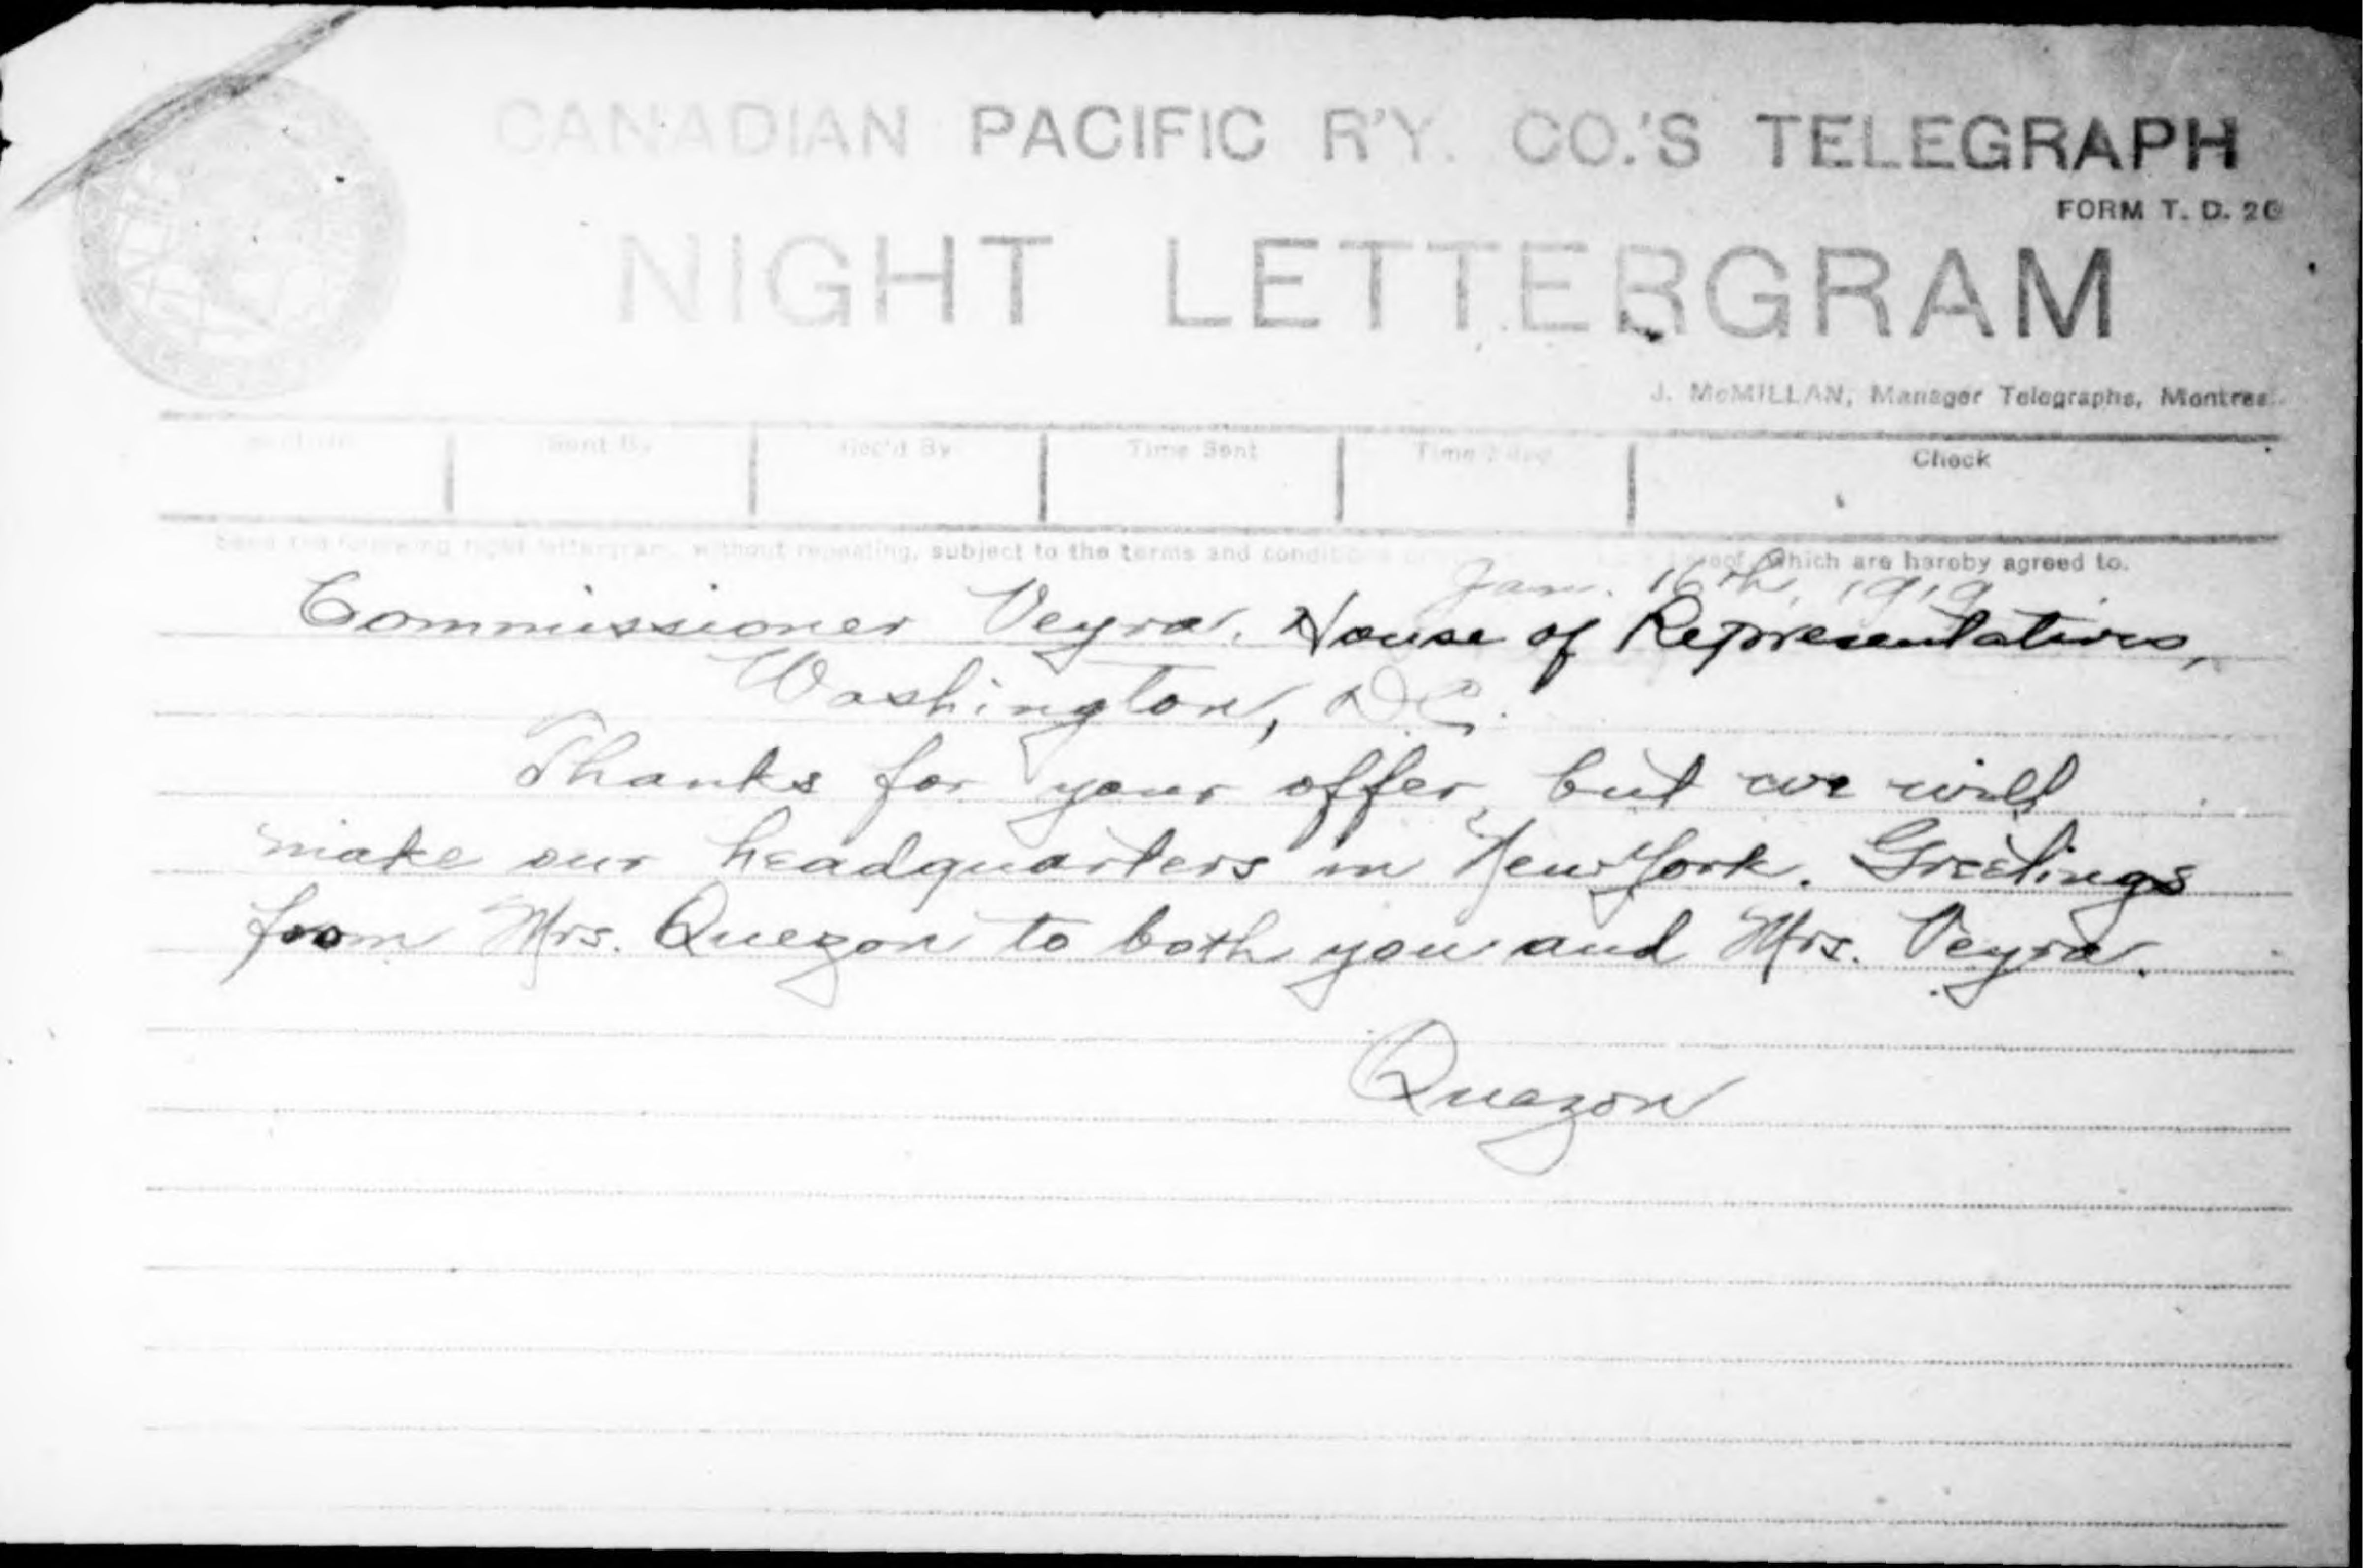 CANADIAN PACIFIC R'Y. CO.'S TELEGRAPH
FORM T. D. 2
NIGHT LETTERGRAM
J. McMILLAN, Manager Telegraphs, Montreal.
Sent By Rec'd By Time Sent Time Filed Check
Send the following night lettergram, without repeating, subject to the terms and conditions hereof, which are hereby agreed to.
Jan. 16th, 1919
Commissioner Veyra, House of Representatives,
Washington, D.C.
Thanks for your offer, but we will
make our headquarters in New York. Greetings
from Mrs. Quezon to both you and Mrs. Veyra.
Quezon